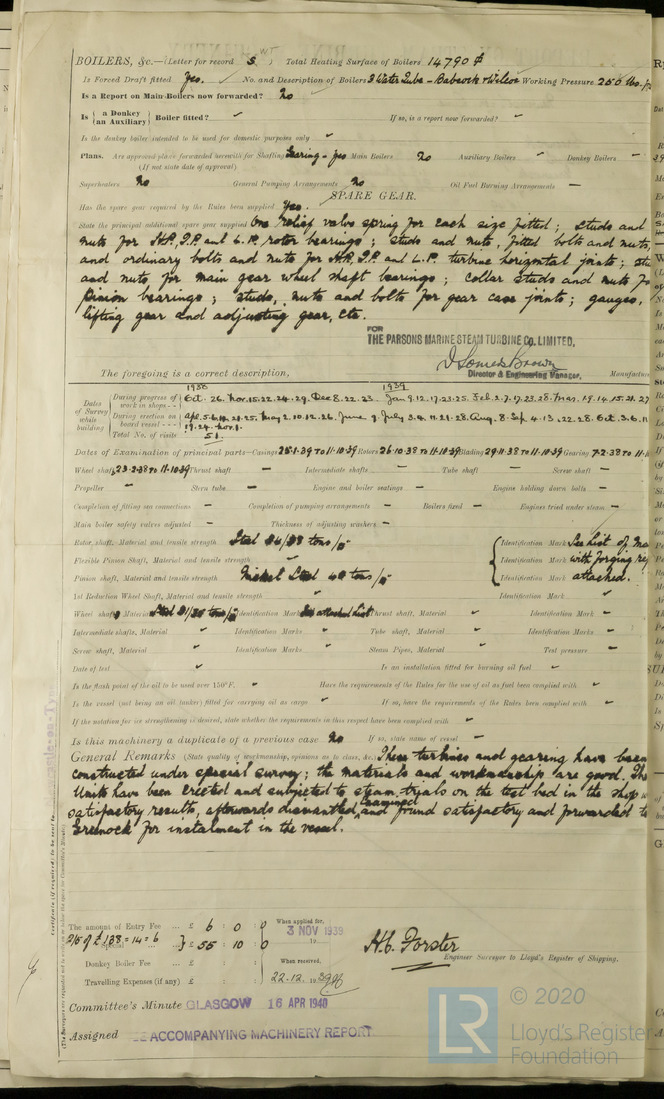 BOILERS, &c.—(Letter for record S WT) Total Heating Surface of Boilers 14790
Is Forced Draft fitted Yes. No. and Description of Boilers 3 Water Tube - Babcock & Wilcox Working Pressure 250 lbs.
Is a Report on Main Boilers now forwarded? No
Is { a Donkey / an Auxiliary } Boiler fitted? If so, is a report now forwarded?
Is the donkey boiler intended to be used for domestic purposes only
Plans. Are approved plans forwarded herewith for Shafting Gearing - yes Main Boilers no Auxiliary Boilers - Donkey Boilers -
(If not state date of approval)
Superheaters No General Pumping Arrangements No Oil Fuel Burning Arrangements —
SPARE GEAR.
Has the spare gear required by the Rules been supplied Yes.
State the principal additional spare gear supplied One relief valve spring for each size fitted; studs and
nuts for H.P., I.P. and L.P. rotor bearings; studs and nuts, fitted bolts and nuts,
and ordinary bolts and nuts for H.P., I.P. and L.P. turbine horizontal joints;
and nuts, for main gear wheel shaft bearings; collar studs and nuts
Pinion bearings; studs, nuts and bolts for gear case joints; gauges,
lifting gear and adjusting gear, etc.
FOR
THE PARSONS MARINE STEAM TURBINE CO. LIMITED,
The foregoing is a correct description,
Director & Engineering Manager. Manufactur
Dates of Survey while building
1938 1939
During progress of work in shops - - Oct. 26. Nov. 15. 22. 24. 29. Dec 8. 22. 23. Jan 9. 12. 17. 21. 25. Feb. 2. 7. 17. 23. 28. Mar. 1. 9. 14. 15. 21. 27
During erection on board vessel - - - Apl. 5. 6. 14. 21. 25. May 2. 10. 12. 26. June 9. July 3. 4. 11. 21. 28. Aug. 8. Sep 4. 13. 22. 28. Oct. 3. 6. 11
17. 24. Nov. 1.
Total No. of visits 51.
Dates of Examination of principal parts—Casings 25.1.39 to 11.10.39 Rotors 26.10.38 to 11.10.39 Blading 29.11.38 to 11.10.39 Gearing 7.2.38 to 11.
Wheel shaft 23.2.38 to 11.10.39 Thrust shaft — Intermediate shafts — Tube shaft — Screw shaft —
Propeller — Stern tube — Engine and boiler seatings — Engine holding down bolts —
Completion of fitting sea connections — Completion of pumping arrangements — Boilers fixed — Engines tried under steam —
Main boiler safety valves adjusted — Thickness of adjusting washers —
Rotor shaft, Material and tensile strength Steel 34/38 tons/□" Identification Mark See List of
Flexible Pinion Shaft, Material and tensile strength Identification Mark with forging
Pinion shaft, Material and tensile strength Nickel Steel 40 tons/□" Identification Mark attached.
1st Reduction Wheel Shaft, Material and tensile strength Identification Mark
Wheel shaft, Material Steel 31/35 tons/□" Identification Mark See attached List Thrust shaft, Material Identification Mark
Intermediate shafts, Material Identification Marks Tube shaft, Material Identification Marks
Screw shaft, Material Identification Marks Steam Pipes, Material Test pressure
Date of test Is an installation fitted for burning oil fuel
Is the flash point of the oil to be used over 150°F. Have the requirements of the Rules for the use of oil as fuel been complied with
Is the vessel (not being an oil tanker) fitted for carrying oil as cargo If so, have the requirements of the Rules been complied with
If the notation for ice strengthening is desired, state whether the requirements in this respect have been complied with
Is this machinery a duplicate of a previous case No If so, state name of vessel —
General Remarks (State quality of workmanship, opinions as to class, &c.) These turbines and gearing have been
constructed under special survey; the materials and workmanship are good. The
Units have been erected and subjected to steam trials on the test bed in the shop
satisfactory results, afterwards dismantled, examined and found satisfactory and forwarded to
Greenock for instalment in the vessel.
The amount of Entry Fee ... £ 6 : 0 : 0 When applied for,
2/5 of £138=14=6 Special ... £ 55 : 10 : 0 3 NOV 1939
Donkey Boiler Fee ... £ : : When received,
Travelling Expenses (if any) £ : : 22.12.1939
H.C. Forster
Engineer Surveyor to Lloyd's Register of Shipping.
Committee's Minute GLASGOW 16 APR 1940
Assigned SEE ACCOMPANYING MACHINERY REPORT.
LR © 2020
Lloyd's Register
Foundation